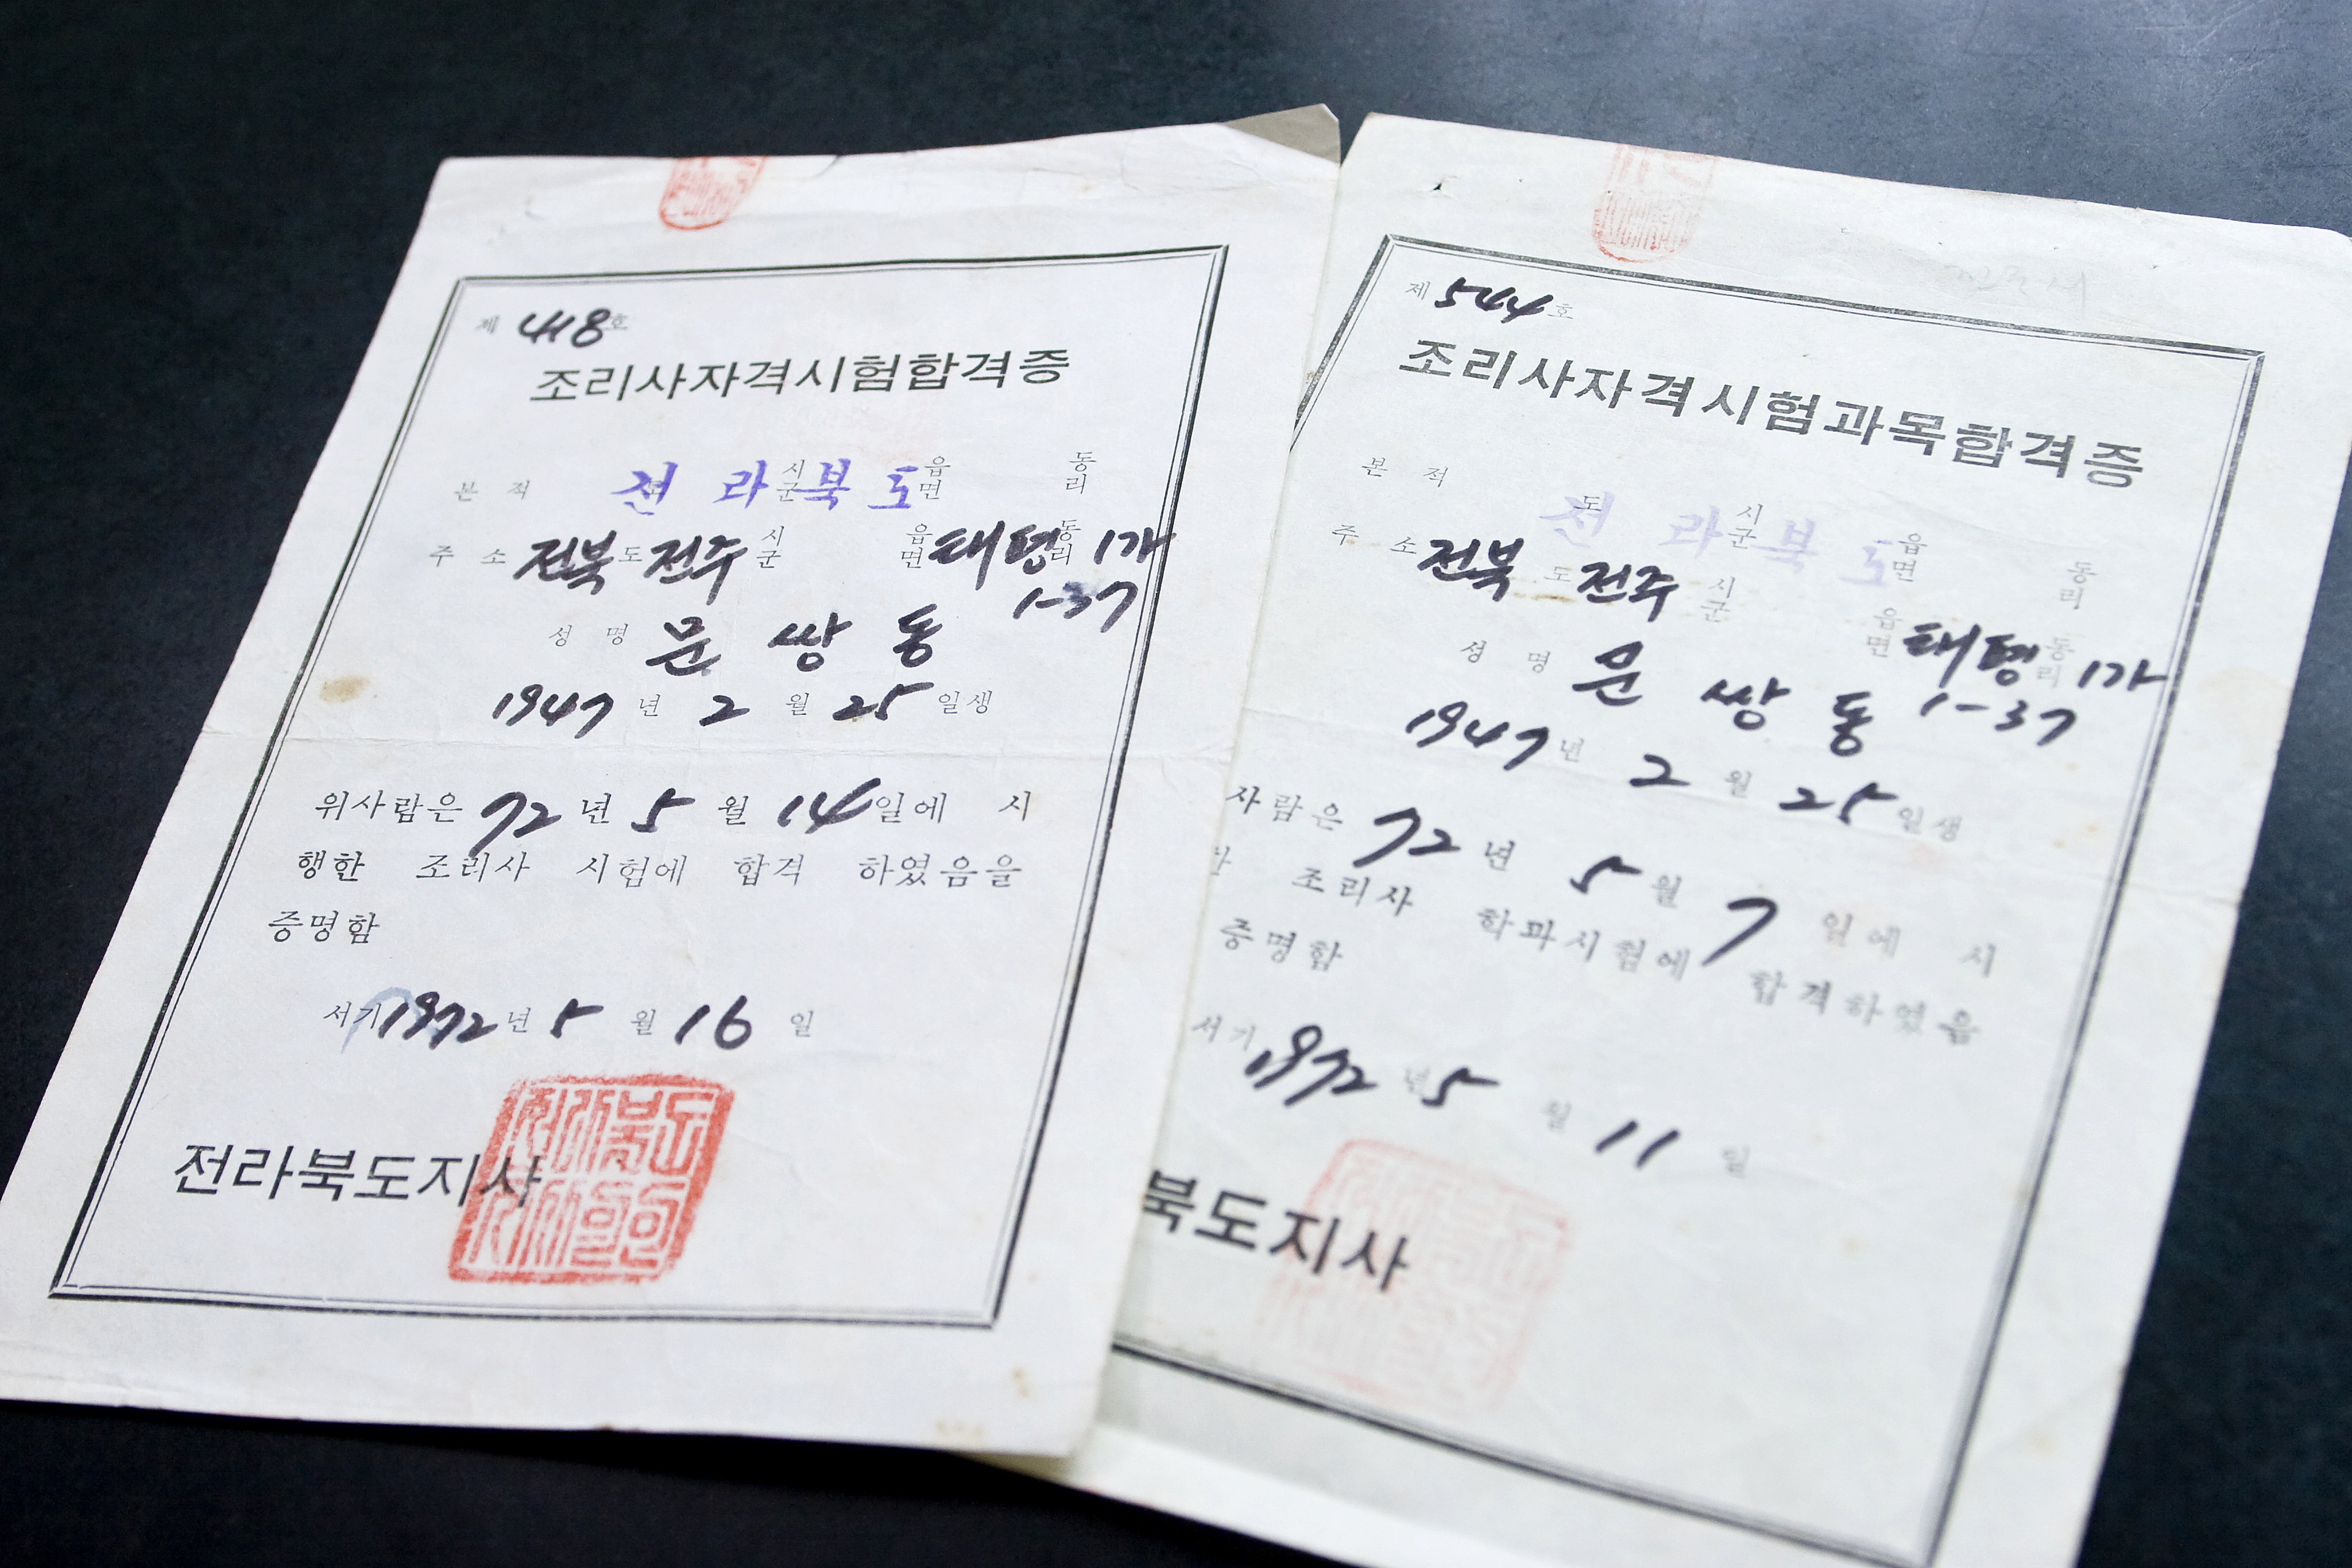 제 418 호
조리사자격시험합격증
본 적 전 라 북 도 시 군 읍 면 동 리
주 소 전북 도 전주 시 군 읍 면 태평 동 리 1가
1-37
성 명 문 쌍 동
1947 년 2 월 25 일생
위사람은 72 년 5 월 14 일에 시
행한 조리사 시험에 합격 하였음을
증명함
서기 1972 년 5 월 16 일
전라북도지사
제 544 호
조리사자격시험과목합격증
본 적 전 라 북 도 도 시 군 읍 면 동 리
주 소 전북 도 전주 시 군 읍 면 태평 동 리 1가
1-37
성 명 문 쌍 동
1947 년 2 월 25 일생
사람은 72 년 5 월 7 일에 시
조리사 학과시험에 합격하였음
증명함
서기 1972 년 5 월 11 일
북도지사